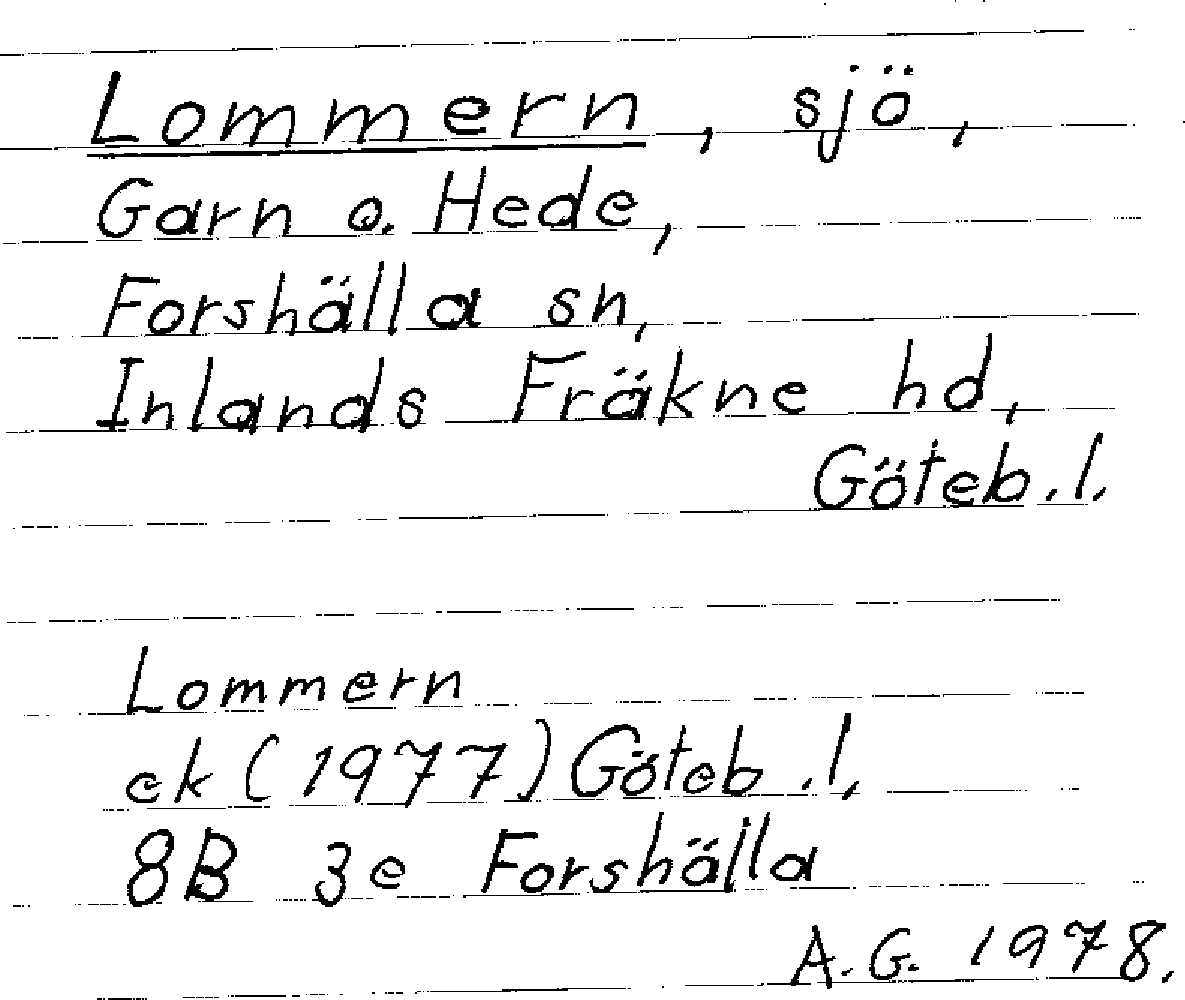 Lommern, sjö,
Garn o. Hede,
Forshälla sn,
Inlands Fräkne hd,
Göteb.l.
Lommern
ek (1977) Göteb.l.
8B 3e Forshälla
A.G. 1978.